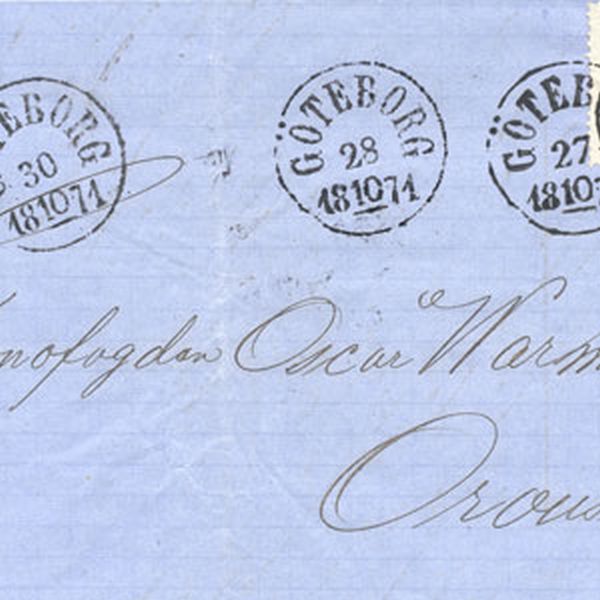 TEBORG
30
181071
GÖTEBORG
28
181071
GÖTEB
27
18107
nofogdan Oscar Warm
Orous